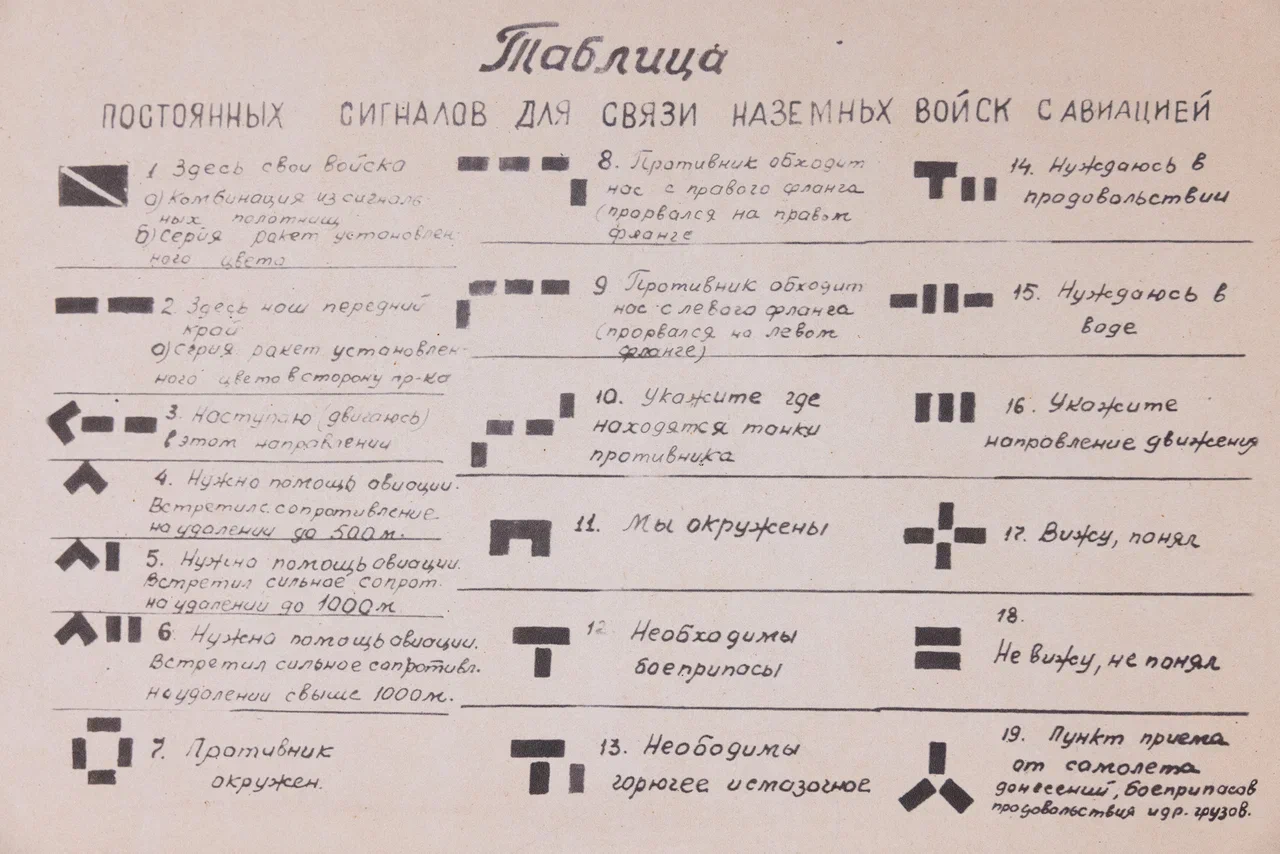 Таблица
ПОСТОЯННЫХ СИГНАЛОВ ДЛЯ СВЯЗИ НАЗЕМНЫХ ВОЙСК С АВИАЦИЕЙ
1 Здесь свои войска
а) Комбинация из сигналь-
ных полотнищ
б) Серия ракет установлен-
ного цвета
2. Здесь наш передний
край
а) Серия ракет установлен-
ного цвета в сторону пр-ка
3. Наступаю (двигаюсь)
в этом направлении
4. Нужна помощь авиации.
Встретил с. сопротивление
на удалении до 500м.
5. Нужна помощь авиации.
Встретил сильное сопрот.
на удалении до 1000м
6 Нужна помощь авиации.
Встретил сильное сопротивл.
на удалении свыше 1000м.
7. Противник
окружен.
8. Противник обходит
нас с правого фланга
(прорвался на правом
фланге
9 Противник обходит
нас с левого фланга
(прорвался на левом
фланге)
10. Укажите где
находятся танки
противника
11. Мы окружены
12 Необходимы
боеприпасы
13. Неободимы
горючее и смазочное
14. Нуждаюсь в
продовольствии
15. Нуждаюсь в
воде
16. Укажите
направление движения
17. Вижу, понял
18.
Не вижу, не понял
19. Пункт приема
от самолета
донесений, боеприпасов
продовольствия и др. грузов.